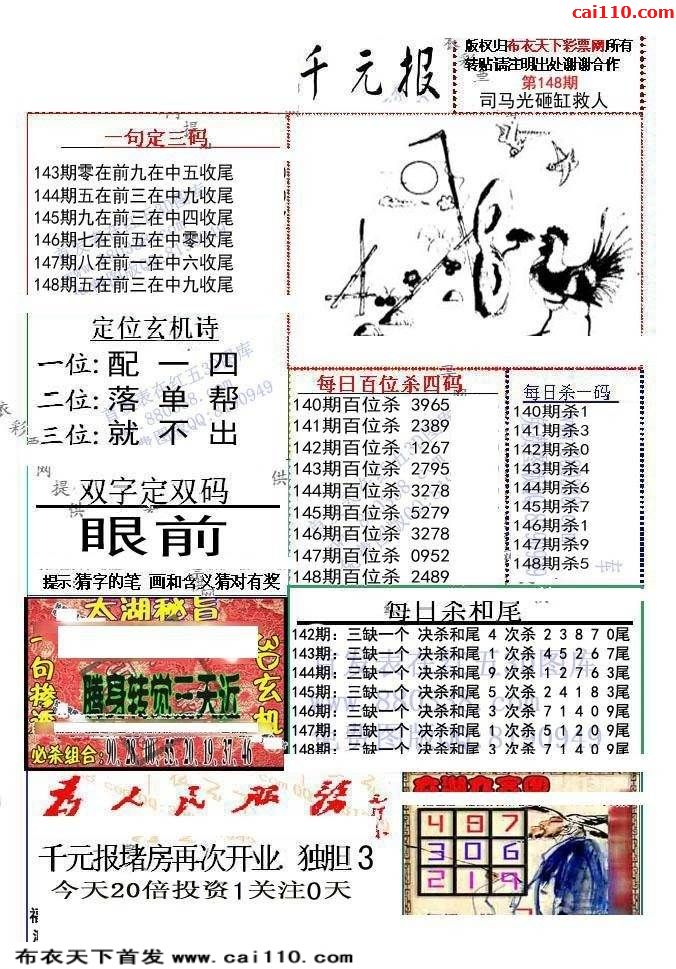 cai110.com
千元报
版权归布衣天下彩票网所有
转贴请注明出处谢谢合作
第148期
司马光砸缸救人
一句定三码
143期零在前九在中五收尾
144期五在前三在中九收尾
145期九在前三在中四收尾
146期七在前五在中零收尾
147期八在前一在中六收尾
148期五在前三在中九收尾
定位玄机诗
一位: 配 一 四
二位: 落 单 帮
三位: 就 不 出
双字定双码
眼前
提示猜字的笔 画和含义猜对有奖
每日百位杀四码
140期百位杀 3965
141期百位杀 2389
142期百位杀 1267
143期百位杀 2795
144期百位杀 3278
145期百位杀 5279
146期百位杀 3278
147期百位杀 0952
148期百位杀 2489
每日杀一码
140期杀1
141期杀3
142期杀0
143期杀4
144期杀6
145期杀7
146期杀1
147期杀9
148期杀5
每日杀和尾
142期: 三缺一个 决杀和尾 4 次杀 2 3 8 7 0尾
143期: 三缺一个 决杀和尾 1 次杀 4 5 2 6 7尾
144期: 三缺一个 决杀和尾 9 次杀 1 7 7 6 3尾
145期: 三缺一个 决杀和尾 5 次杀 2 4 1 8 3尾
146期: 三缺一个 决杀和尾 3 次杀 7 1 4 0 9尾
147期: 三缺一个 决杀和尾 1 次杀 5 1 2 0 9尾
148期: 三缺一个 决杀和尾 3 次杀 7 1 4 0 9尾
太湖秘旨
随身转觉三天近
3D玄机
必杀组合: 90.28.00.55.20.19.37.46
为人民服务
千元报堵房再次开业 独胆3
今天20倍投资1关注0天
4 8 7
3 0 6
2 1 9
布衣天下首发 www.cai110.com